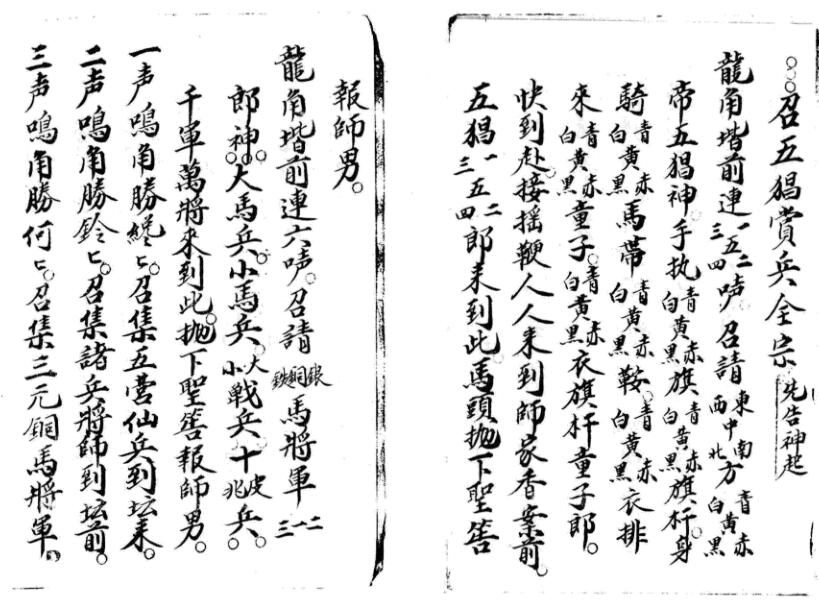 召五猖賞兵全宗 先告神起
龍角堦前連一五二三四声召請東中南西北方青黄赤白黑
帝五猖神手执青黄赤白黑旗青黄赤白黑旗杆身
騎青黄赤白黑馬帶青黄赤白黑鞍青黄赤白黑衣排
來青黄赤白黑童子青黄赤白黑衣旗杆童子郎
快到赴接摇鞭人人来到師家香案前
五猖一五二三四郎来到此馬頭抛下聖筶
報師男
龍角堦前連六声召請銀銅鉄馬將軍一二三
郎神大馬兵小馬兵大小戦兵十兆兵
千軍萬將来到此抛下聖筶報師男
一声鳴角勝匕召集五营仙兵到坛来
二声鳴角勝鈴匕召集諸兵將師到坛前
三声鳴角勝何匕召集三元銅馬將軍